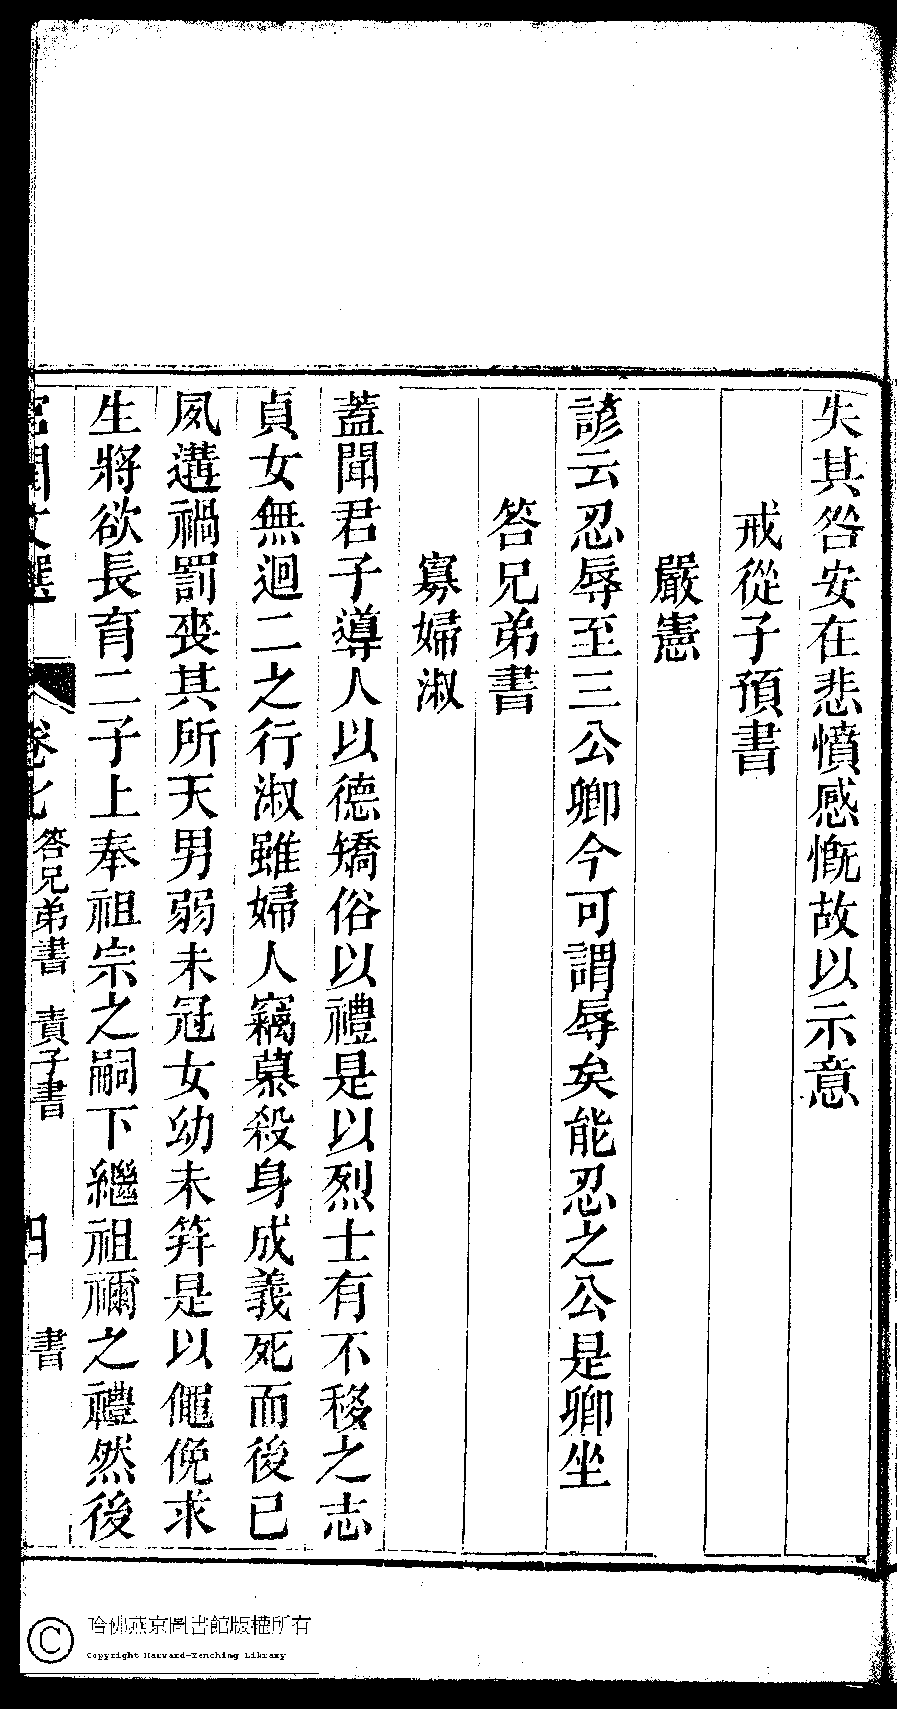 失其咎安在悲憤感慨故以示意
戒從子預書
嚴憲
諺云忍辱至三公卿今可謂辱矣能忍之公是卿坐
答兄弟書
寡婦淑
蓋聞君子導人以德矯俗以禮是以烈士有不移之志
貞女無迴二之行淑雖婦人竊慕殺身成義死而後已
夙遘禍罰喪其所天男弱未冠女幼未笄是以僶俛求
生將欲長育二子上奉祖宗之嗣下繼祖禰之禮然後
宮閨文選 卷七 答兄弟書 責子書 四 書
哈佛燕京圖書館版權所有
Copyright Harvard-Yenching Library